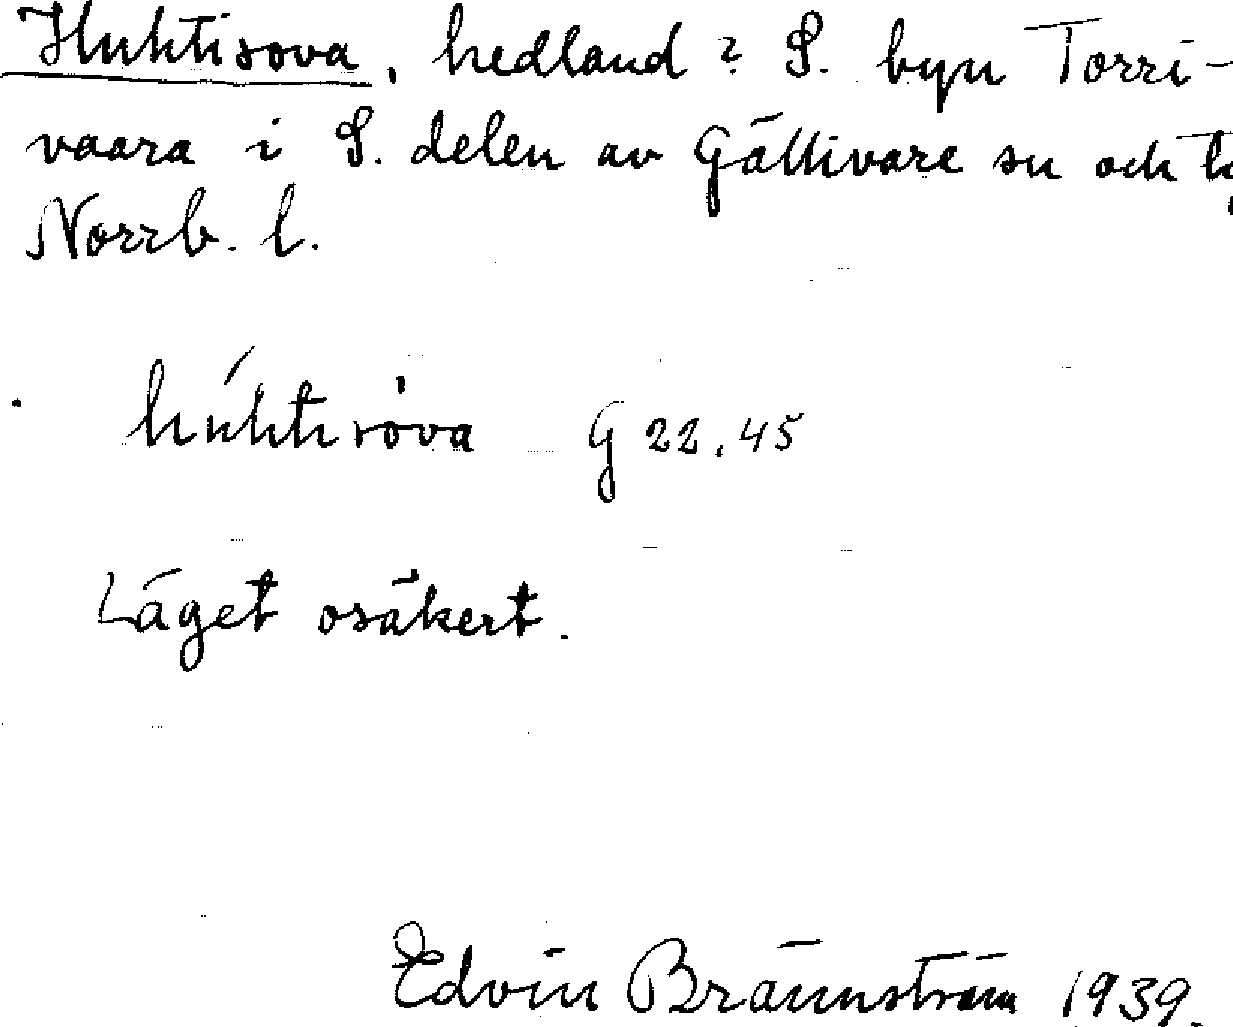 Huhtisova, hedland? S. byn Torri-
vaara i S. delen av Gällivare sn och
Norrb. l.
húhtisòva G 22.45
Läget osäkert.
Edvin Brännström 1939.